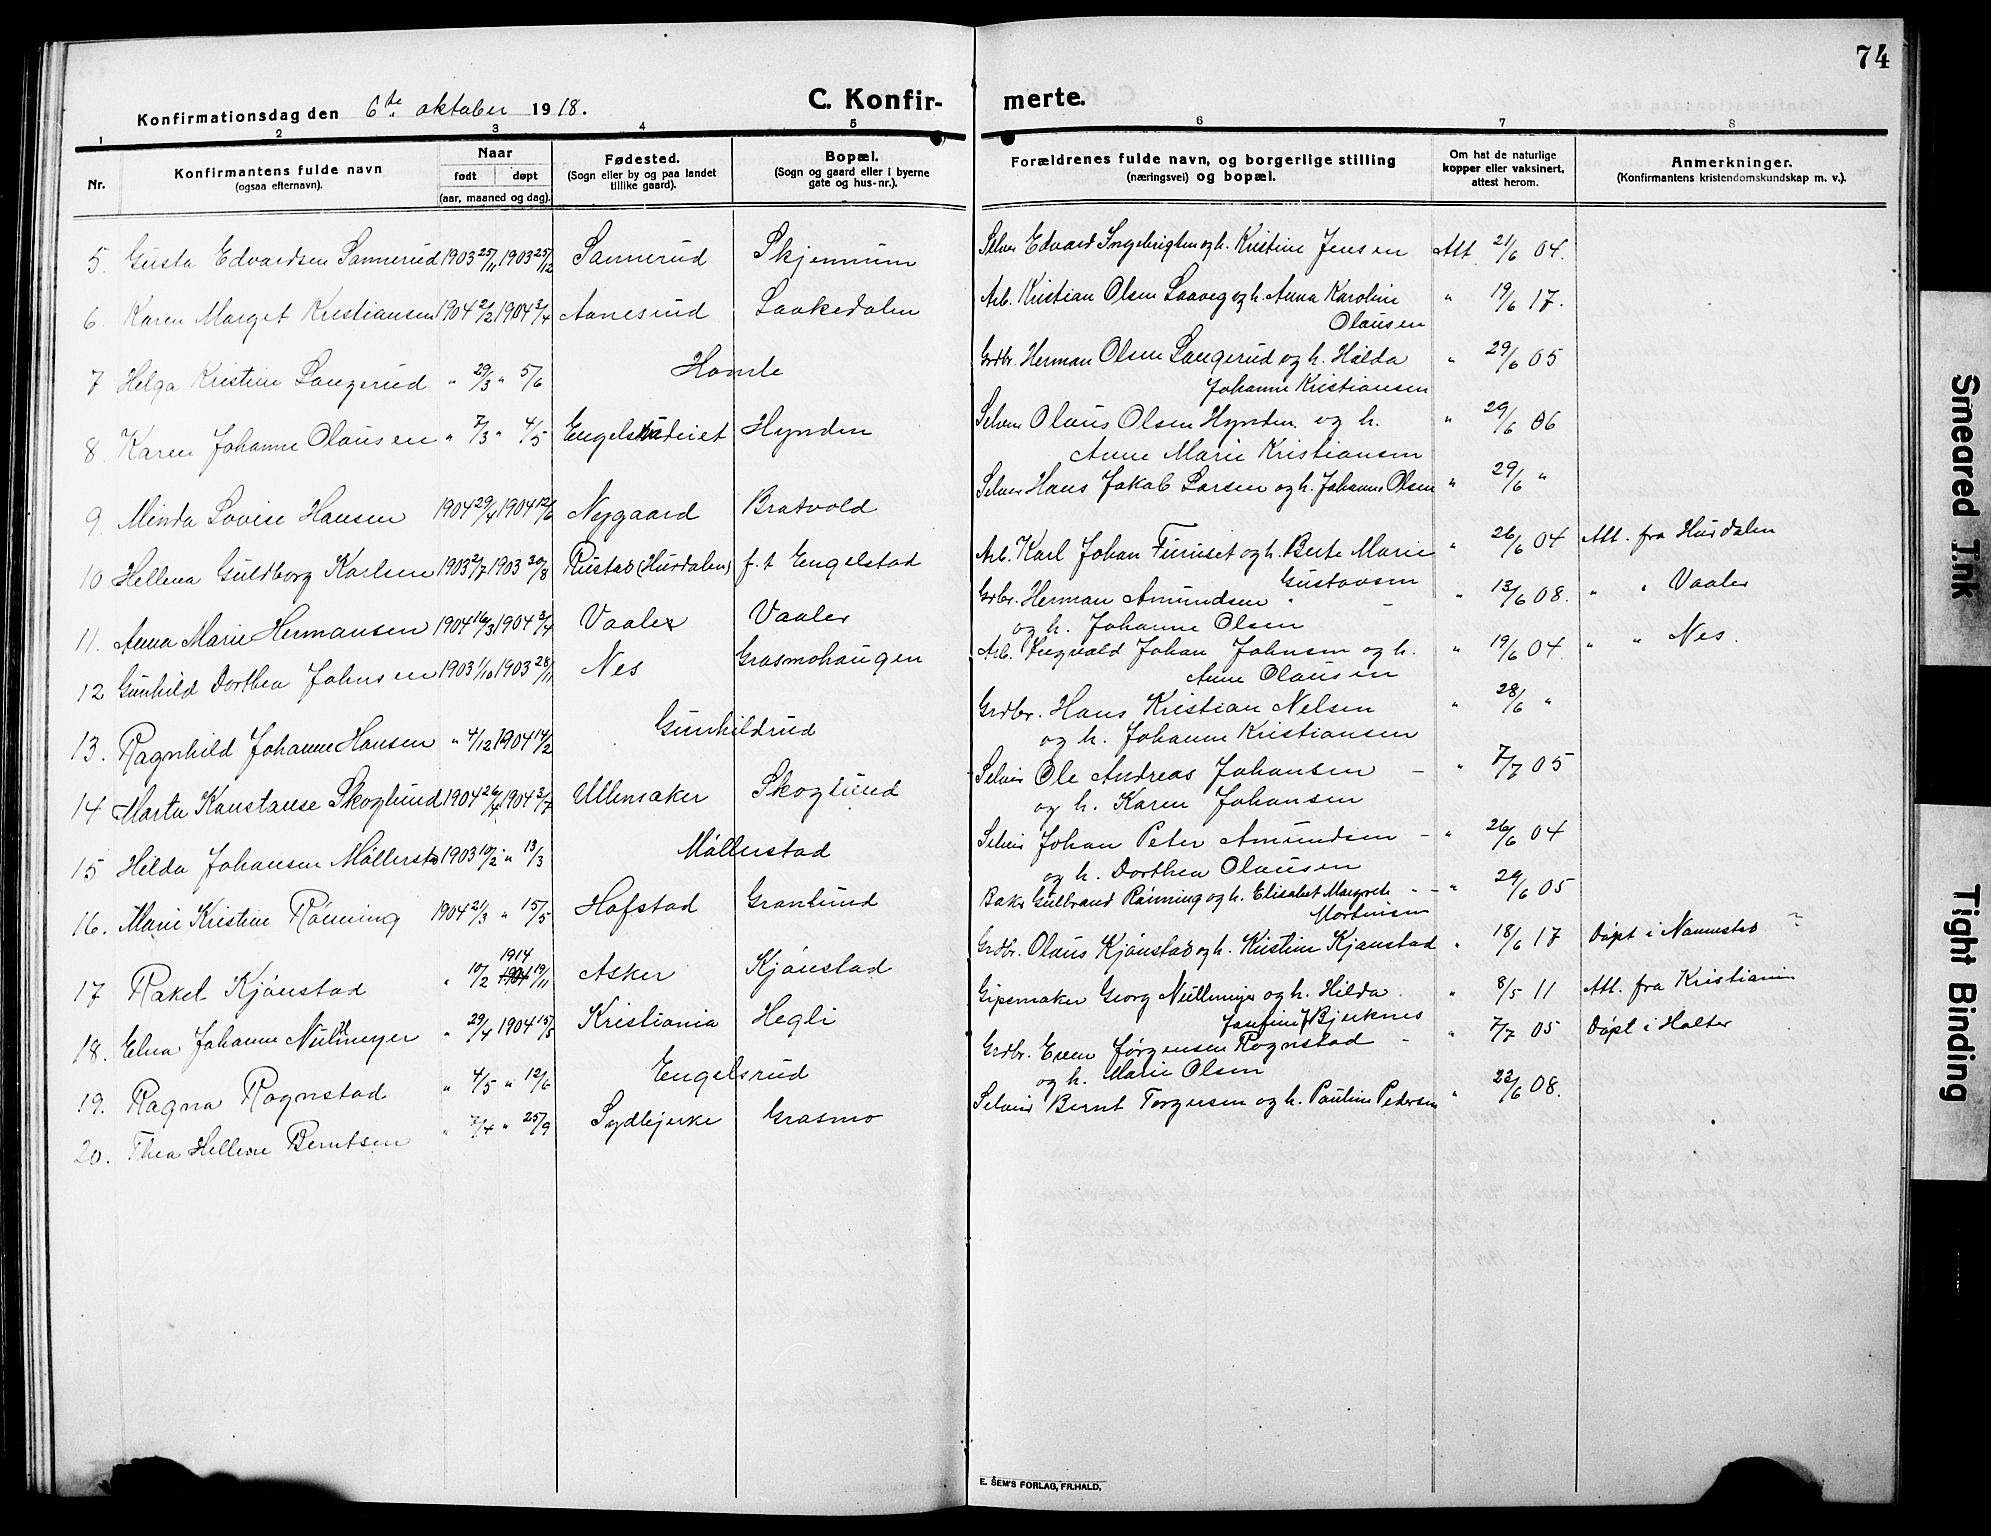 74
Konfirmationsdag den 6te oktober 1918.
C. Konfirmerte.
1 2 3 4 5 6 7 8
Nr.
Konfirmantens fulde navn
(ogsaa efternavn).
Naar
født døpt
(aar, maaned og dag).
Fødested.
(Sogn eller by og paa landet
tillike gaard).
Bopæl.
(Sogn og gaard eller i byerne
gate og hus-nr.).
Forældrenes fulde navn, og borgerlige stilling
(næringsvei) og bopæl.
Om hat de naturlige
kopper eller vaksinert,
attest herom.
Anmerkninger.
(Konfirmantens kristendomskundskap m. v.).
5. Gusta Edvardsen Sannerud 1903 25/11 1903 25/12 Sannerud Skjennum Selvei Edvard Ingebrigtsen og h. Kristine Jensen Att. 21/6 04.
6. Karen Marget Kristiansen 1904 2/2 1904 3/4 Aanesrud Laakedalen Arb. Kristian Olsen Laaveg og h. Anna Karoline " 19/6 17.
Olausen
7 Helga Kristine Langerud " 29/3 " 5/6 Homle Grdbr. Herman Olsen Langerud og h. Hilda " 29/6 05
Johanne Kristiansen
8. Karen Johanne Olausen " 7/3 " 4/5 Hynden Selvei Olaus Olsen Hynden og h. " 29/6 06
Anne Marie Kristiansen
9. Minda Lovise Hansen 1904 29/4 1904 12/6 Nygaard Bratvold Selvei Hans Jakob Larsen og h. Johanne Olsen " 29/6 "
10 Hellena Guldborg Karlsen 1903 2/7 1903 20/8 Rustad (Hurdalen) f. t Engelstad Arb. Karl Johan Furuset og h. Berte Marie " 26/6 04 Att. fra Hurdalen
Gustavsen
11. Anna Marie Hermansen 1904 16/3 1904 3/4 Vaaler Vaaler Grbr. Herman Amundsen " 13/6 08. " " Vaaler
og h. Johanne Olsen
12 Gunhild Dorthea Johnsen 1903 1/10 1903 28/11 Nes Grasmohaugen Arb. Johan Johnsen og h. " 19/6 04. " " Nes.
Anne Olausen
13. Ragnhild Johanne Hansen " 4/12 1904 14/2 Gunhildrud Grdbr. Hans Kristian Nelsen " 28/6 "
og h. Johanne Kristiansen
14 Marta Konstanse Skoglund 1904 26/4 1904 3/7 Ullensaker Skoglund Selvei Ole Andreas Johansen — " 7/7 05
og h. Karen Johansen
15 Hilda Johansen Møllerst. 1903 10/2 " 13/3 Møllerstad Selvei Johan Peter Amundsen - " 26/6 04
og h. Dorthea Olausen
16. Marie Kristine Rønning 1904 21/3 " 15/5 Hofstad Granlund Baker Gulbrand Rønning og h. Elisabet Margrete " 29/6 05
Mortensen
17 Rakel Kjønstad " 10/2 1914 1904 19/11 Asker Kjønstad Grdbr. Olaus Kjønstad og h. Kristine Kjønstad " 18/6 17 Døpt i Nannestad
18. Elna Johanne Nüllmeyer " 29/4 1904 15/5 Kristiania Hegli Gipsmaker Georg Nüllmeyer og h. Hilda " 8/5 11 Att. fra Kristiania
Josefine Bjerknes
19. Ragna Rognstad " 4/5 " 12/6 Engelsrud Grdbr. Even Jørgensen Rognstad - " 7/7 05 Døpt i Holter
og h. Marie Olsen
20. Thea Hellene Berntsen " 7/4 " 25/9 Sydbjerke Grasmo Selvei Bernt Torgersen og h. Pauline Pedersen " 22/6 08.
E. SEM'S FORLAG, FR.HALD.
Smeared Ink
Tight Binding